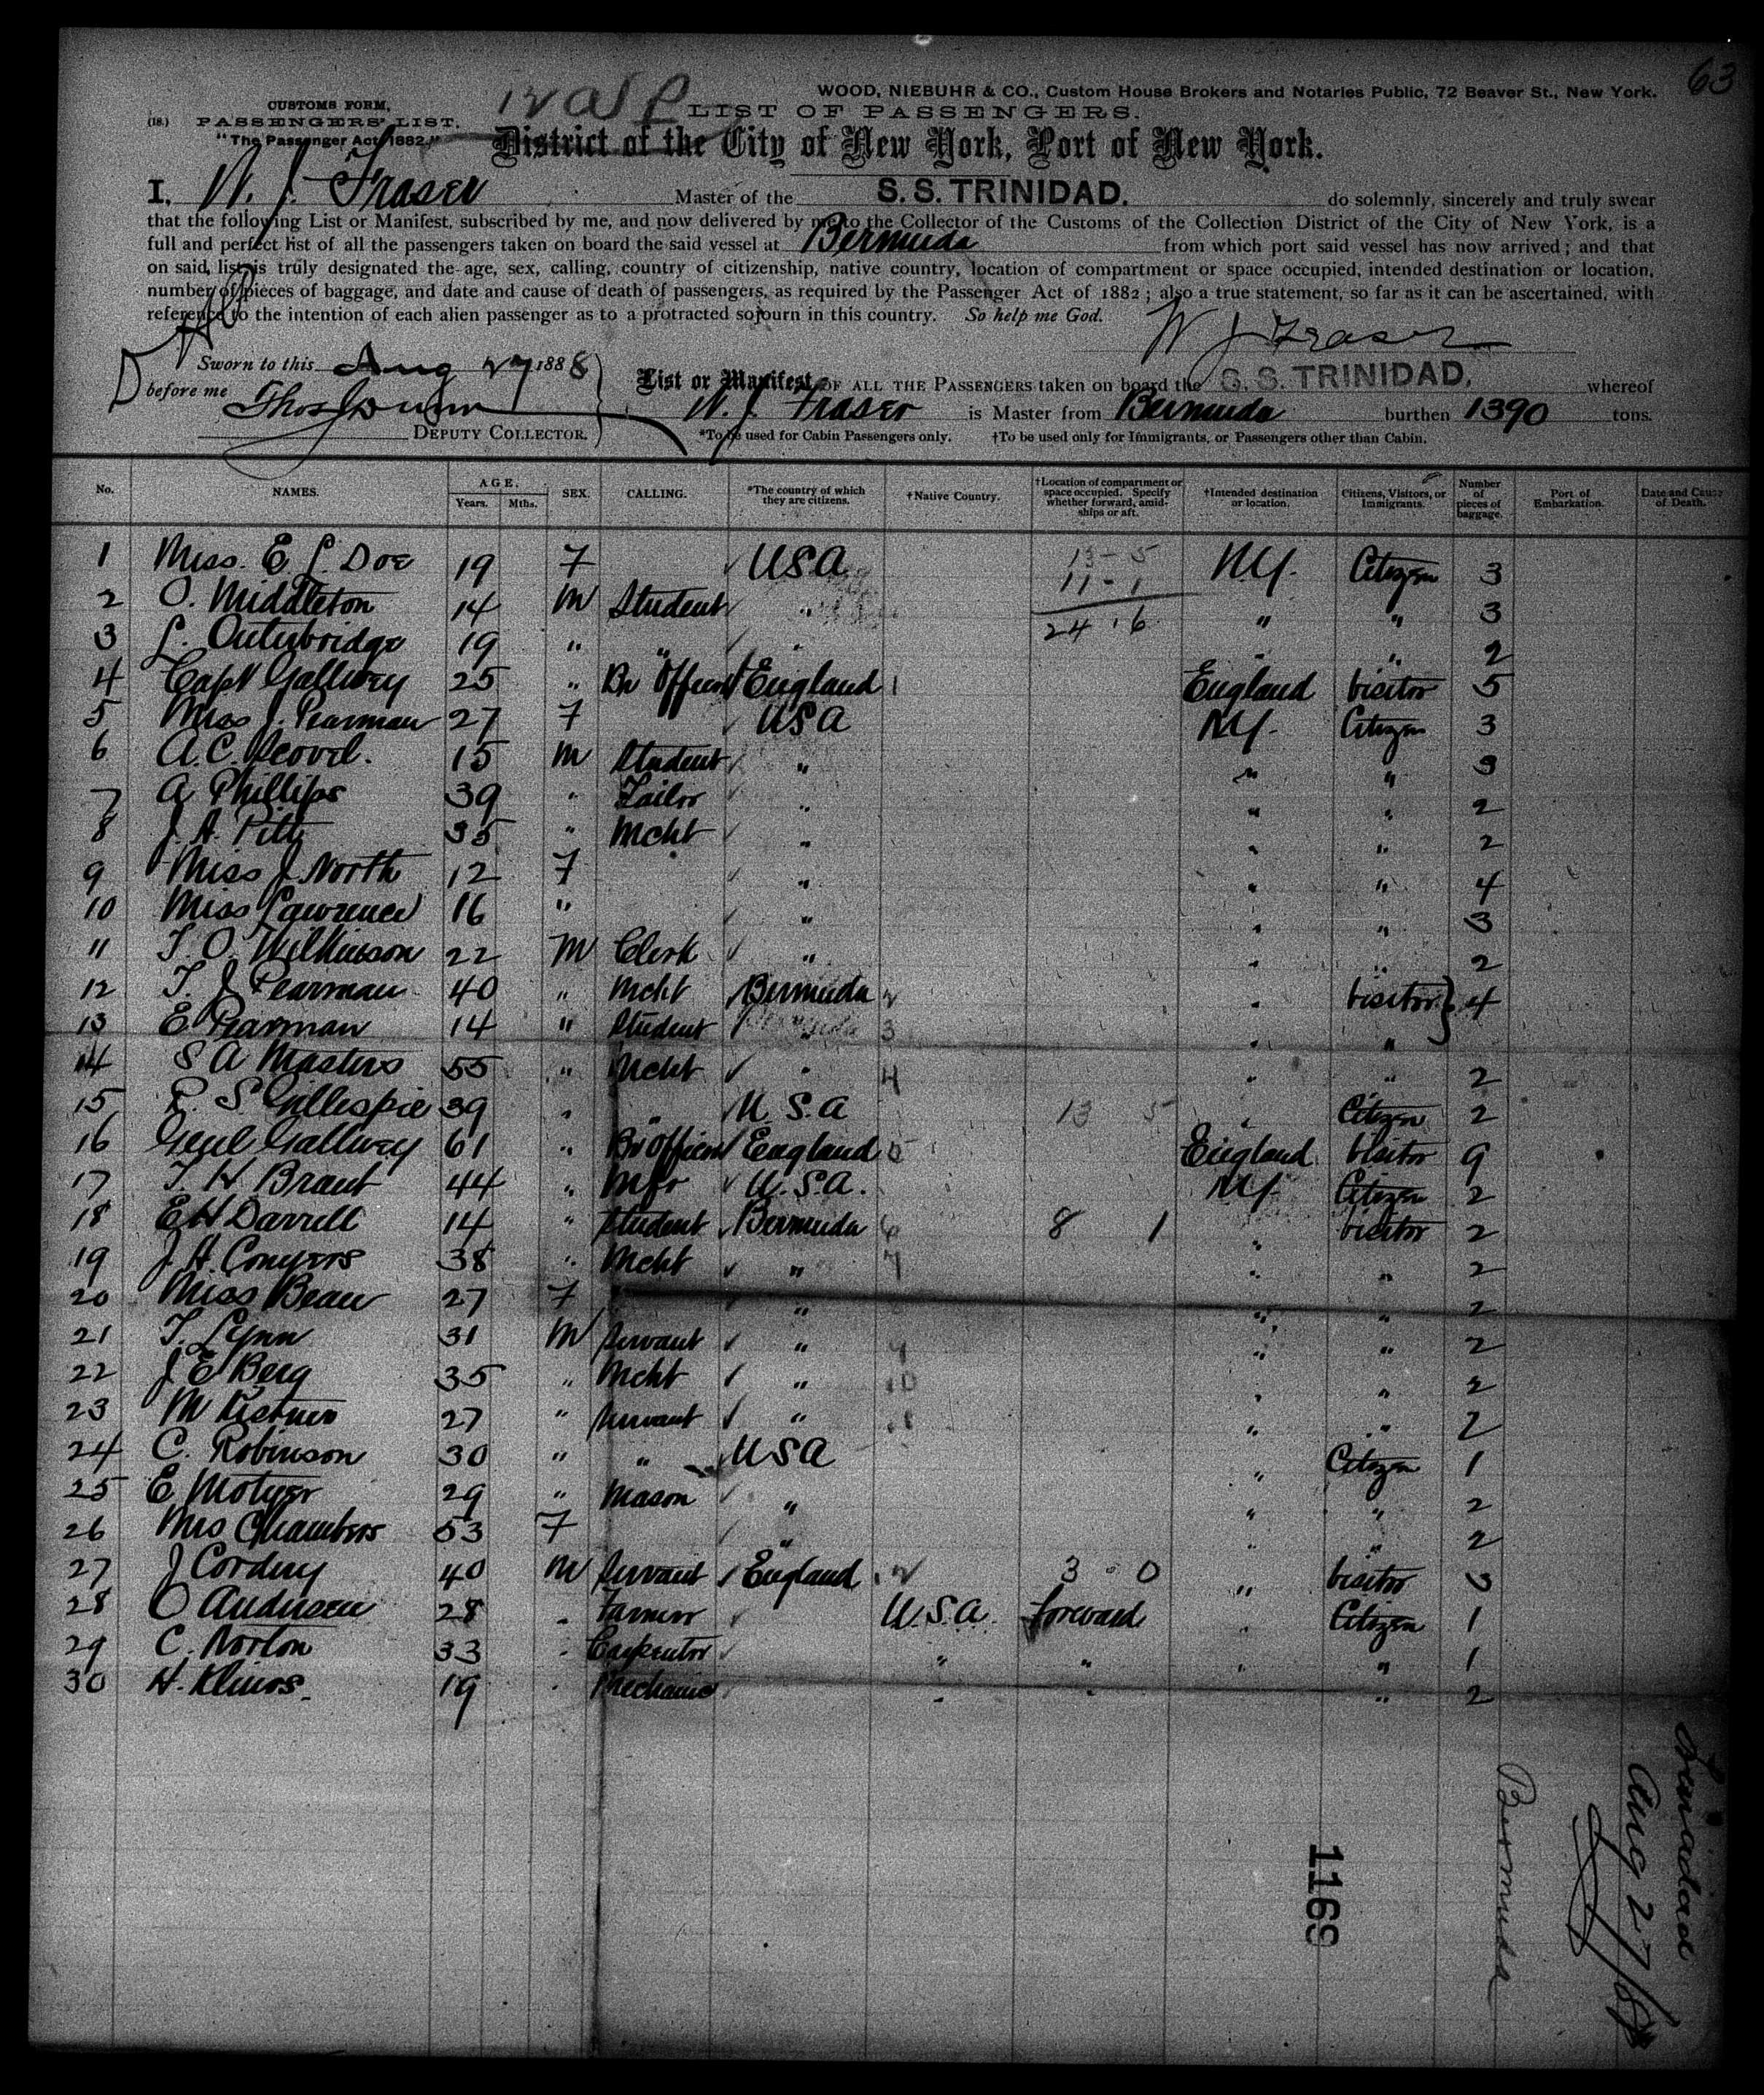 63
WOOD, NIEBUHR & CO., Custom House Brokers and Notaries Public, 72 Beaver St., New York.
CUSTOMS FORM,
(18.) PASSENGERS' LIST.
"The Passenger Act, 1882."
LIST OF PASSENGERS.
District of the City of New York, Port of New York.
I, W. J. Fraser Master of the S. S. TRINIDAD. do solemnly, sincerely and truly swear
that the following List or Manifest, subscribed by me, and now delivered by me to the Collector of the Customs of the Collection District of the City of New York, is a
full and perfect list of all the passengers taken on board the said vessel at Bermuda from which port said vessel has now arrived; and that
on said list is truly designated the age, sex, calling, country of citizenship, native country, location of compartment or space occupied, intended destination or location,
number of pieces of baggage, and date and cause of death of passengers, as required by the Passenger Act of 1882; also a true statement, so far as it can be ascertained, with
reference to the intention of each alien passenger as to a protracted sojourn in this country. So help me God.
W J Fraser
Sworn to this Aug 27 1888
before me Thos
DEPUTY COLLECTOR.
List or Manifest OF ALL THE PASSENGERS taken on board the S. S. TRINIDAD. whereof
W. J. Fraser is Master from Bermuda burthen 1390 tons.
*To be used for Cabin Passengers only. †To be used only for Immigrants, or Passengers other than Cabin.
No. NAMES. AGE. Years. Mths. SEX. CALLING. *The country of which they are citizens. †Native Country. †Location of compartment or space occupied. Specify whether forward, amidships or aft. †Intended destination or location. Citizens, Visitors, or Immigrants. Number of pieces of baggage. Port of Embarkation. Date and Cause of Death.
1 Miss. E. L. Doe 19 F USA 13 - 5 11 - 1 N.Y. Citizen 3
2 O. Middleton 14 M Student " 24 . 6 " " 3
3 L. Outerbridge 19 " " " " " 2
4 Capt Gallwey 25 " Br Officer England 1 England Visitor 5
5 Miss J. Pearman 27 F USA N.Y. Citizen 3
6 A. C. Scovil. 15 M Student " " " 3
7 A Phillips 39 " Tailor " " " 2
8 J. A. Pitt 35 " Mcht " " " 2
9 Miss J. North 12 F " " " 4
10 Miss Lawrence 16 " " " " 3
11 T. O. Wilkinson 22 M Clerk " " " 2
12 T. J. Pearman 40 " Mcht Bermuda 2 " Visitor } 4
13 E Pearman 14 " Student " 3 " "
14 S A Masters 55 " Mcht " 4 " " 2
15 R. S. Gillespie 39 " " U.S.A 13 5 " Citizen 2
16 Genl Gallwey 61 " Br Officer England 5 England Visitor 9
17 T. H Brant 44 " Mfr U.S.A. N.Y. Citizen 2
18 E H Darrell 14 " Student Bermuda 6 8 1 " Visitor 2
19 J. H. Conyers 38 " Mcht " 7 " " 2
20 Miss Bean 27 F " " " 2
21 T. Lynn 31 M Servant " 9 " " 2
22 J E Berg 35 " Mcht " 10 " " 2
23 M 27 " Servant " " " 2
24 C. Robinson 30 " " USA " Citizen 1
25 E Motyer 29 " Mason " " " 2
26 Mrs Chambers 53 F " " " 2
27 J Cordery 40 M Servant England 3 - 0 " Visitor 3
28 O Andersen 28 " Farmer U.S.A. Forward " Citizen 1
29 C. Norton 33 " Carpenter " " " " 1
30 H. 19 " Mechanic " " " 2
Trinidad
Aug 27/88
Bermuda
1169